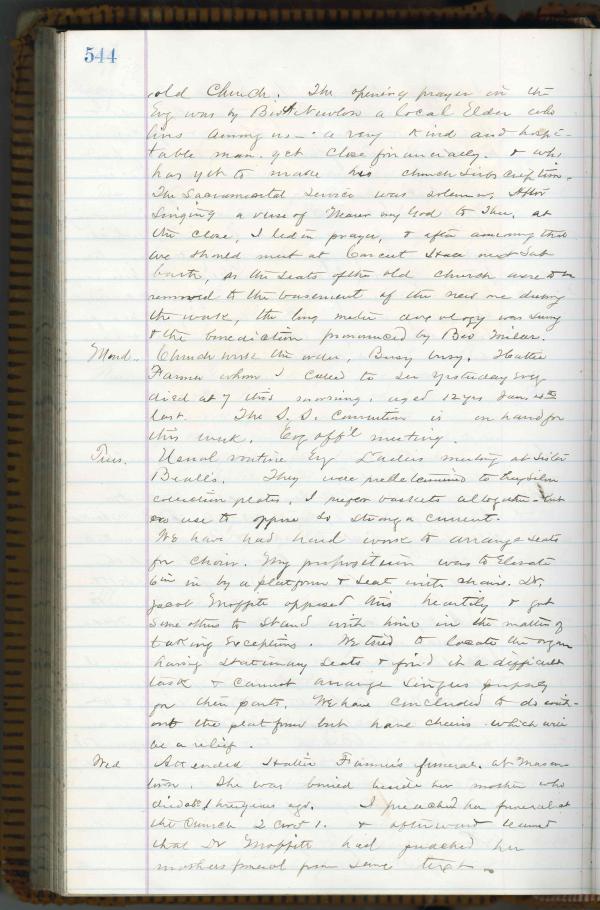 544
old Church. The opening prayer in the
Evg was by Bro Newlon a local Elder who
lives among us - a very kind and hospi-
table man. yet close financially. & who
has yet to make his church subscription.
The Sacramental service was solemn. After
singing a verse of Nearer my God to Thee, at
the close, I led in prayer, & after announcing that
we should meet at Concert Hall next Sab
bath, as the seats of the old church were to be
removed to the basement of the new one during
the week, the long metre doxology was sung
& the benediction pronounced by Bro Milar.
Mond. Church work the order. Busy busy. Hattie
Farmer whom I called to see yesterday Evg
died at 7 this morning. aged 12 yrs Jan.
last. The S. S. Convention is on hand for
this week. Evg off'l meeting.
Tues. Usual routine Evg Ladies meeting at Sister
Beall's. They were predetermined to buy silver
collection plates. I prefer baskets altogether - but
no use to oppose so strong a current.
We have had hard work to arrange seats
for choir. My proposition was to elevate
6 in by a platform & seat with chairs. Dr.
Jacob Moffitt opposed this heartily & got
some others to stand with him in the matter of
taking exceptions. We tried to locate the organ
having stationary seats & find it a difficult
task & cannot arrange singers properly
for their parts. We have concluded to do with-
out the platform but have chairs which will
be a relief.
Wed Attended Hattie Farmer's funeral. at Mason
town. She was buried beside her mother who
died three years ago. I preached her funeral at
the Church 2 Cor 1. & afterward learned
that Dr Moffitt had preached her
mothers funeral from same text.